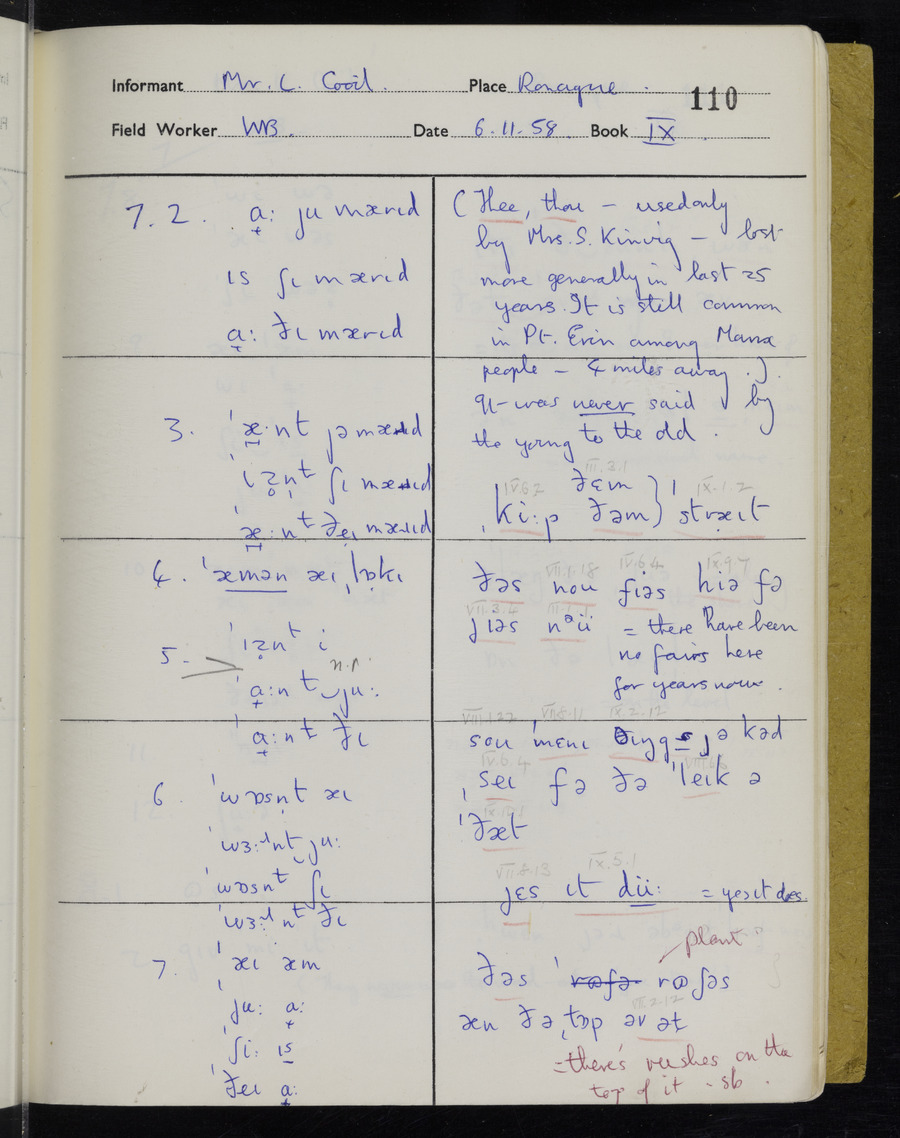 Informant Mr. C. Cooil. Place Ronague. 110
Field Worker WB. Date 6.11.58. Book IX
7.2. a̟: ju mærɪd
ɪs ʃɪ mærɪd
a̟: ðɪ mærɪd
3.
4. ˈæmən æɪ ˌlɒkɪ
5. ˈɪz̥nt i
n.r.
ˈa̟:nt‿ju:
ˈa̟:nt ðɪ
6. ˈwɒsn̩t æɪ
ˈwɜ:ɹnt‿ju:
ˈwɒsnt ʃɪ
ˈwɜ:ɹnt ðɪ
7. ˈæɪ æm
ˈju: a̟:
ˈʃi: ɪs
ˈðeɪ a̟:
(Thee, thou – used only
by Mrs. S. Kinvig – lost
more generally in last 25
years. It is still common
in Pt. Erin among Manx
people – 4 miles away.).
It was never said by
the young to the old.
III.3.1
IV.6.2 ðɛm IX.1.2
ˌki:p ðəm) ˈstræɪt
VII.1.18 IV.6.4 IX.9.7
ðəs nou fiəs hiə fə
VII.3.4
jɪəs nᵊü = there have been
no fairs here
for years now.
VIII.1.22 VII.8.11 IX.2.12
sou ˈmɛnɪ θɪŋgs jə kəd
IV.6.4 VIII.6.5
ˌseɪ fə ðə ˈleɪk ə
ˈðæt
VII.8.13 IX.5.1
jɛs ɪt dü: = yes it does.
plant
ðəs ˈrɷʃə rɷʃəs
VII.2.12
æn ðə ˌtɒp əv ət
= there's rushes on the
top of it - sb.